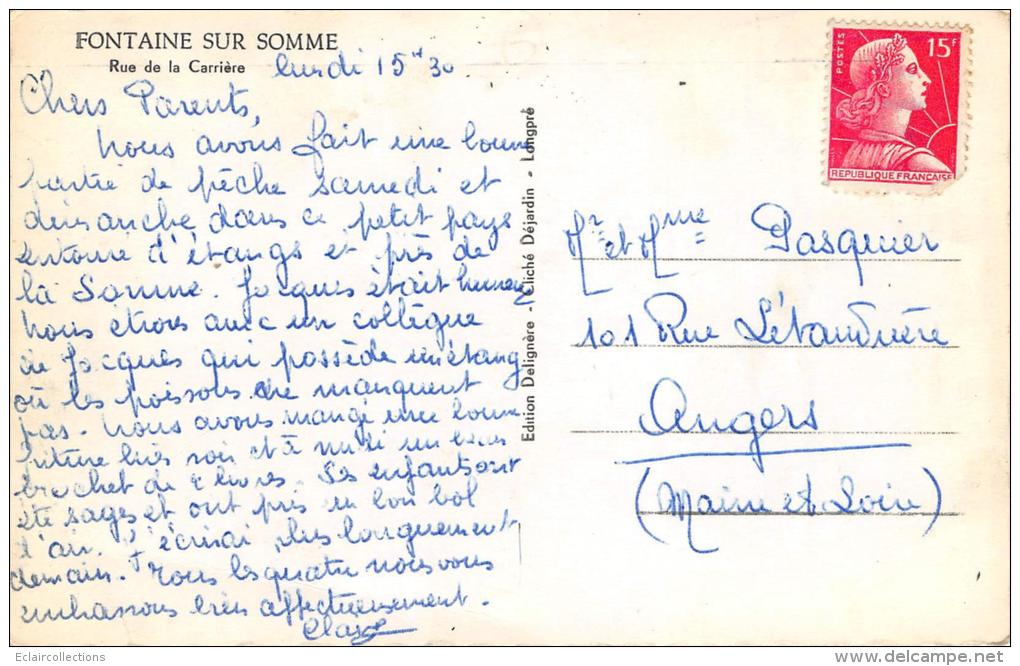 FONTAINE SUR SOMME
Rue de la Carrière
lundi 15h30
Chers Parents,
Nous avons fait une bonne
partie de pêche samedi et
dimanche dans ce petit pays
entouré d'étangs et près de
la Somme. Jacques était heureux
Nous étions avec un collègue
de Jacques qui possède un étang
où les poissons ne manquent
pas. Nous avons mangé une bonne
friture hier soir et à midi un beau
brochet de 2 livres. Les enfants ont
été sages et ont pris un bon bol
d'air. J'écrirai plus longuement
demain. Tous les quatre nous vous
embrassons très affectueusement.
Edition Delignère - Cliché Déjardin - Longpré
POSTES
15F
REPUBLIQUE FRANÇAISE
Mr et Mme Pasquier
101 Rue Létanduère
Angers
(Maine et Loire)
Eclaircollections
delcampe.net